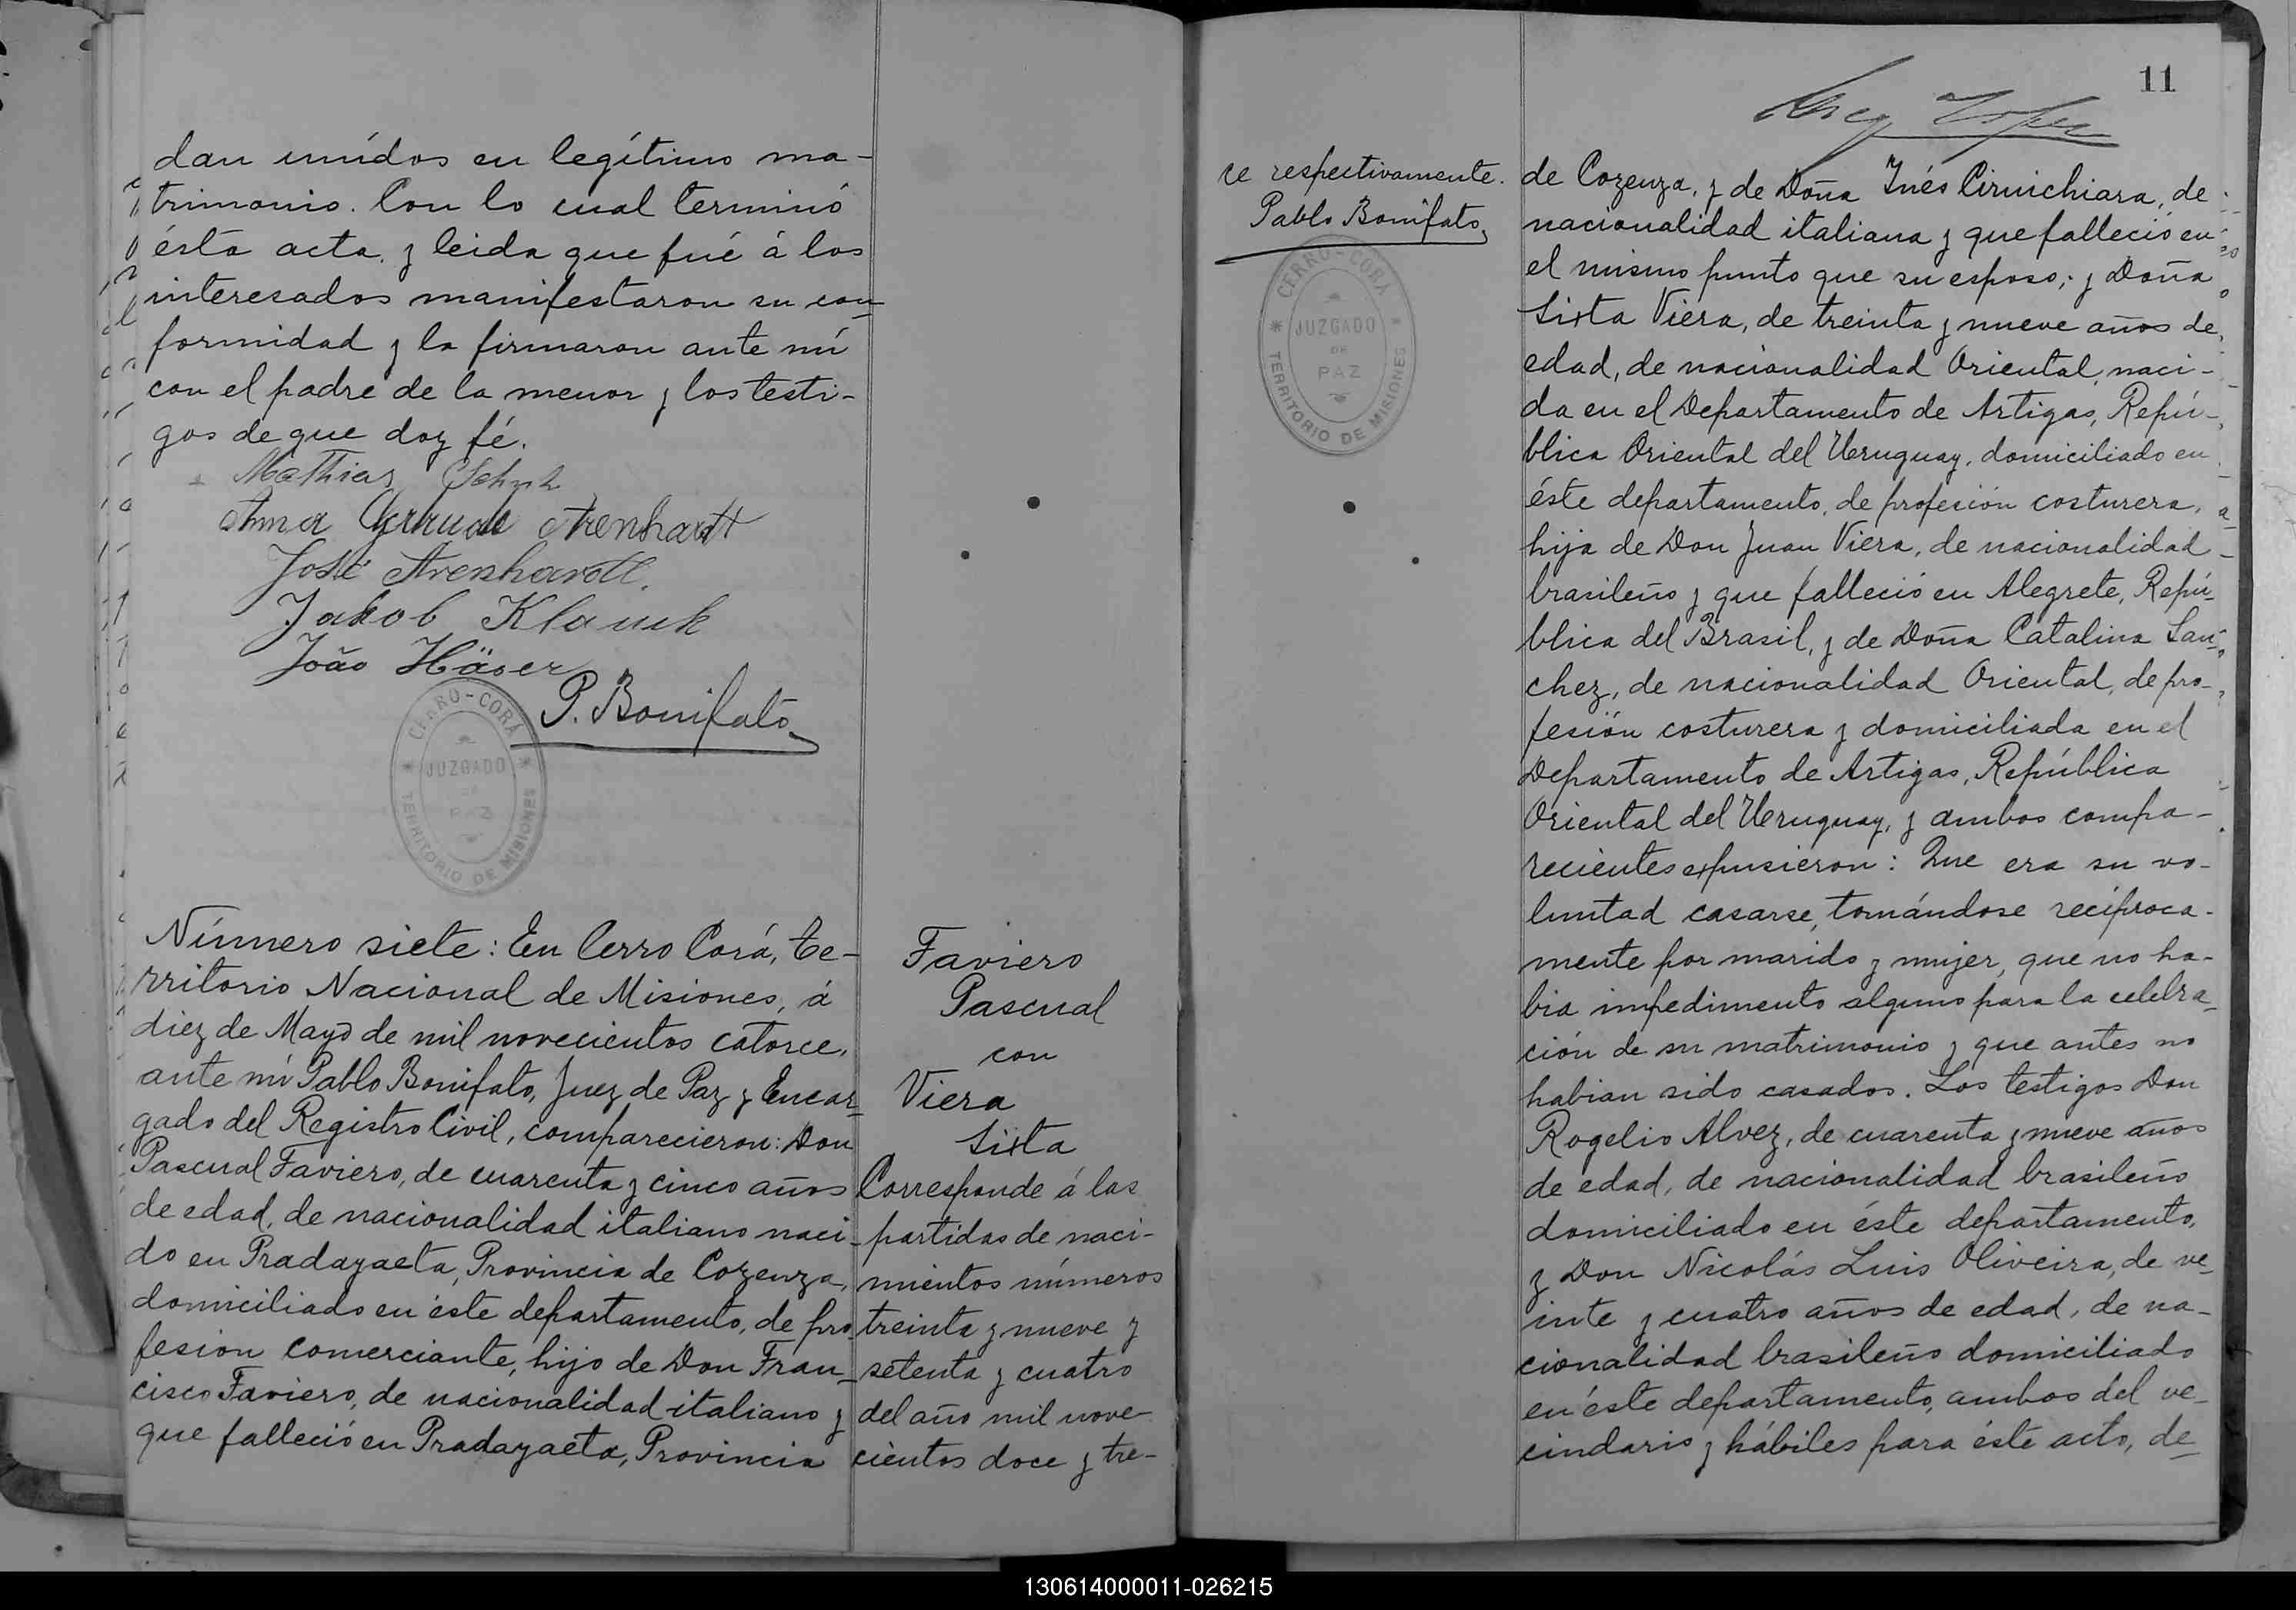 dan unídos en legítimo ma-
trimonio. Con lo cual terminó
ésta acta, y leida que fué á los
interesados manifestaron su con-
formidad y la firmaron ante mí
con el padre de la menor y los testi-
gos de que doy fé.
Mathias
Anna Arenhardt
José Arenhardt.
Jakob Klauck
João Häser
P. Bonifato
CERRO-CORÁ
JUZGADO
DE
PAZ
TERRITORIO DE MISIONES
Número siete: En Cerro Corá, te-
rritorio Nacional de Misiones, á
diez de Mayo de mil novecientos catorce,
ante mí Pablo Bonifato, Juez de Paz y Encar-
gado del Registro Civil, comparecieron: Don
Pascual Faviero, de cuarenta y cinco años
de edad, de nacionalidad italiano naci-
do en Pradayaeta, Provincia de Cozenza,
domiciliado en éste departamento, de pro-
fesión comerciante, hijo de Don Fran-
cisco Faviero, de nacionalidad italiano y
que falleció en Pradayaeta, Provincia
Faviero
Pascual
con
Viera
Sixta
Corresponde á las
partidas de naci-
mientos números
treinta y nueve y
setenta y cuatro
del año mil nove-
cientos doce y tre-
ce respectivamente.
Pablo Bonifato
CERRO-CORÁ
JUZGADO
DE
PAZ
TERRITORIO DE MISIONES
11
de Cozenza, y de Doña Inés Cirnichiara, de
nacionalidad italiana y que falleció en
el mismo punto que su esposo; y Doña
Sixta Viera, de treinta y nueve años de
edad, de nacionalidad Oriental, naci-
da en el Departamento de Artigas, Repú-
blica Oriental del Uruguay, domiciliado en
éste departamento, de profeción costurera,
hija de Don Juan Viera, de nacionalidad
brasileño y que falleció en Alegrete, Repú-
blica del Brasil, y de Doña Catalina San-
chez, de nacionalidad Oriental, de pro-
fesión costurera y domiciliada en el
Departamento de Artigas, República
Oriental del Uruguay, y ambos compa-
recientes expusieron: Que era su vo-
luntad casarse, tomándose recíproca-
mente por marido y mujer, que no ha-
bia impedimento alguno para la celebra-
ción de su matrimonio y que antes no
habian sido casados. Los testigos Don
Rogelio Alvez, de cuarenta y nueve años
de edad, de nacionalidad brasileño
domiciliado en éste departamento,
y Don Nicolás Luis Oliveira, de ve-
inte y cuatro años de edad, de na-
cionalidad brasileño domiciliado
en éste departamento, ambos del ve-
cindario y hábiles para éste acto, de-
130614000011-026215